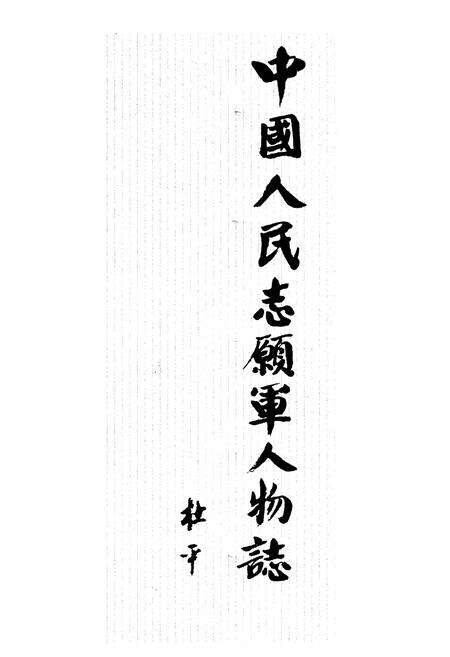 中國人民志願軍人物誌
杜平